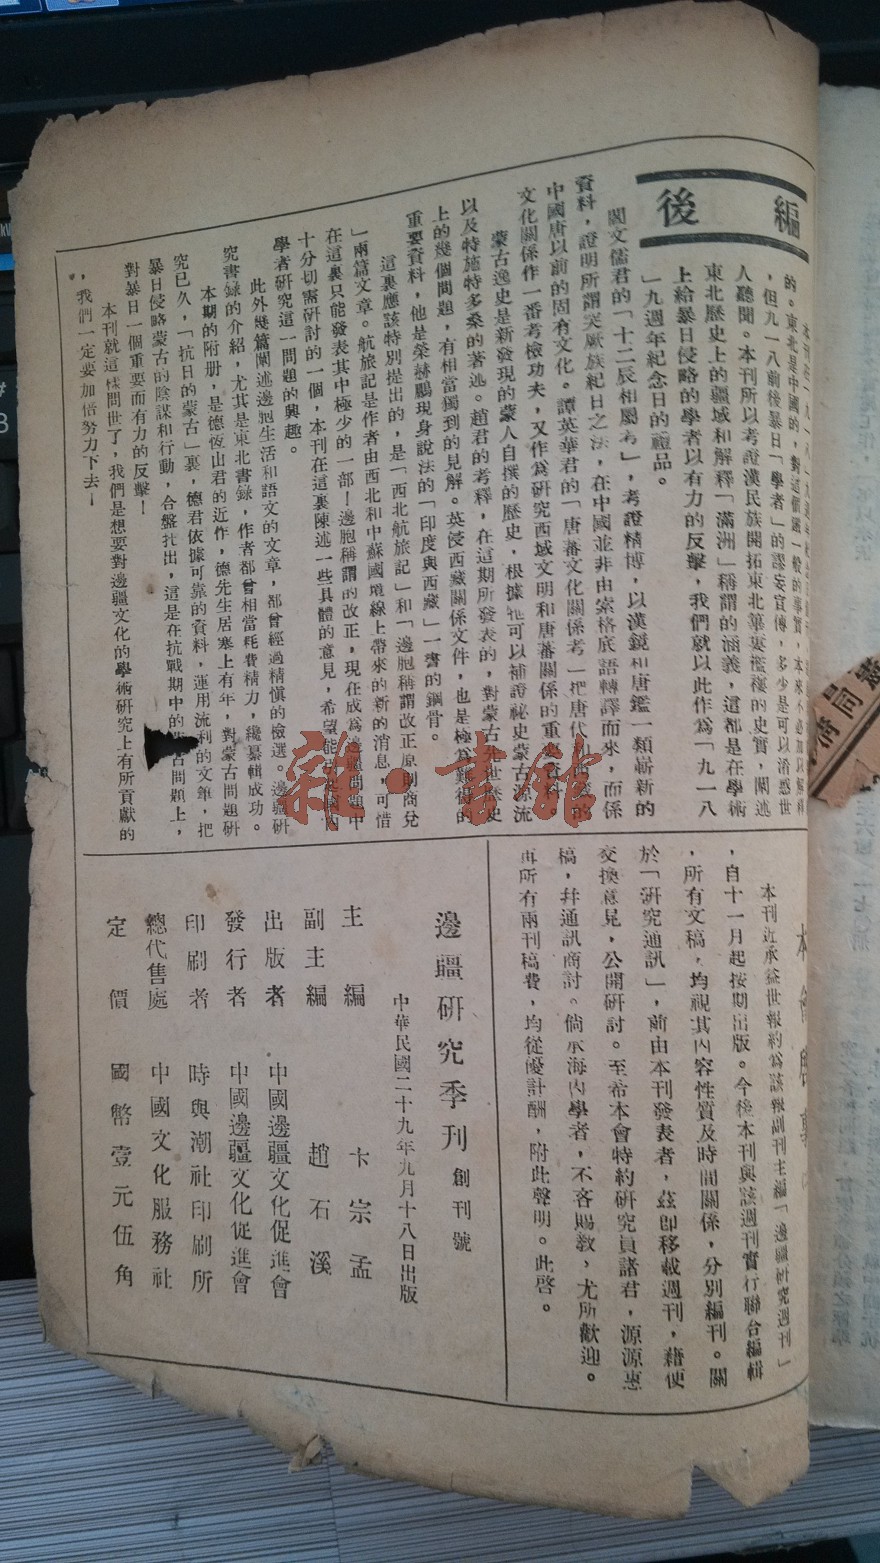 編後
的。東北是中國的，對這個鐵一般的事實，本來不必加以解釋
，但九一八前後暴日「學者」的謬妄宣傳，多少是可以淆惑世
人聽聞。本刊所以考證漢民族開拓東北蓽蔞襤褸的史實，闡述
東北歷史上的疆域和解釋「滿洲」稱謂的涵義，這都是在學術
上給暴日侵略的學者以有力的反擊，我們就以此作爲「九一八
」九週年紀念日的禮品。
閻文儒君的「十二辰相屬考」，考證精博，以漢鏡和唐鑑一類嶄新的
資料，證明所謂突厥族紀日之法，在中國並非由索格底語轉譯而來，而係
中國唐以前的固有文化。譚英華君的「唐蕃文化關係考」把唐代和西藏的
文化關係作一番考檢功夫，又作爲研究西域文明和唐蕃關係的重要資料。
蒙古逸史是新發現的蒙人自撰的歷史，根據牠可以補證祕史蒙古源流
以及特施特多桑的著述。趙君的考釋，在這期所發表的，對蒙古先世歷史
上的幾個問題，有相當獨到的見解。英浸西藏關係文件，也是極爲難得的
重要資料，他是榮赫鵬現身說法的「印度與西藏」一書的鋼骨。
這裏應該特別提出的，是「西北航旅記」和「邊胞稱謂改正原則商兌
」兩篇文章。航旅記是作者由西北和中蘇國境線上帶來的新的消息，可惜
在這裏只能發表其中極少的一部！邊胞稱謂的改正，現在成爲邊疆問題中
十分切需研討的一個，本刊在這裏陳述一些具體的意見，希望能引起國內
學者研究這一問題的興趣。
此外幾篇闡述邊胞生活和語文的文章，都曾經過精慎的檢選。邊疆研
究書錄的介紹，尤其是東北書錄，作者都曾相當耗費精力，纔纂輯成功。
本期的附册，是德恆山君的近作，德先生居塞上有年，對蒙古問題研
究已久，「抗日的蒙古」裏，德君依據可靠的資料，運用流利的文筆，把
暴日侵略蒙古的陰謀和行動，合盤托出，這是在抗戰期中的蒙古問題上，
對暴日一個重要而有力的反擊！
本刊就這樣問世了，我們是想要對邊疆文化的學術研究上有所貢獻的
，我們一定要加倍努力下去！
本刊近承益世報約爲該報副刊主編「邊疆研究週刊」
，自十一月起按期出版。今後本刊與該週刊實行聯合編輯
，所有文稿，均視其內容性質及時間關係，分別編刊。關
於「研究通訊」，前由本刊發表者，茲卽移載週刊，藉便
交換意見，公開研討。至希本會特約研究員諸君，源源惠
稿，幷通訊商討。倘承海內學者，不吝賜教，尤所歡迎。
再所有兩刊稿費，均從優計酬，附此聲明。此啓。
邊疆研究季刊 創刊號
中華民國二十九年九月十八日出版
主編 卞宗孟
副主編 趙石溪
出版者 中國邊疆文化促進會
發行者 中國邊疆文化促進會
印刷者 時與潮社印刷所
總代售處 中國文化服務社
定價 國幣壹元伍角
雜·書館